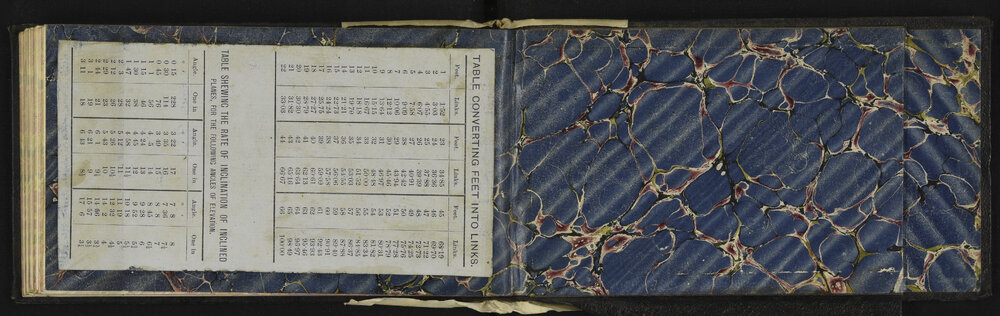 TABLE CONVERTING FEET INTO LINKS.
Feet. Links. Feet. Links. Feet. Links.
1 1·52 23 34·85 45 68·19
2 3·03 24 36·36 46 69·70
3 4·55 25 37·88 47 71·22
4 6·06 26 39·39 48 72·73
5 7·58 27 40·91 49 74·25
6 9·09 28 42·42 50 75·76
7 10·06 29 43·94 51 77·28
8 12·12 30 45·46 52 78·79
9 13·65 31 46·97 53 80·31
10 15·15 32 48·48 54 81·82
11 16·67 33 50·00 55 83·34
12 18·18 34 51·52 56 84·85
13 19·70 35 53·03 57 86·37
14 21·21 36 54·55 58 87·88
15 22·72 37 56·06 59 89·40
16 24·24 38 57·58 60 90·91
17 25·75 39 59·09 61 92·43
18 27·27 40 60·61 62 93·93
19 28·79 41 62·13 63 95·45
20 30·30 42 63·64 64 96·97
21 31·82 43 65·16 65 98·49
22 33·03 44 66·67 66 100·00
TABLE SHEWING THE RATE OF INCLINATION OF INCLINED
PLANES, FOR THE FOLLOWING ANGLES OF ELEVATION.
Angle. One in Angle. One in Angle. One in
0 15 228 3 22 17 7 8 8
0 30 114 3 35 16 7 36 7½
0 45 76 3 49 15 8 8 7
1 1 56 4 5 14 8 45 6½
1 15 46 4 24 13 9 28 6
1 30 38 4 45 12 9 52
1 47 32 4 58 10 18 5½
2 3 28 5 12 11 11 19 5
2 12 26 5 26 10½ 12 32 4½
2 29 23 5 43 10 14 2 4
2 44 21 6 1 9½ 3¾
3 1 19 6 21 9 15 57 3½
3 11 18 6 43 8½ 17 6 3¼